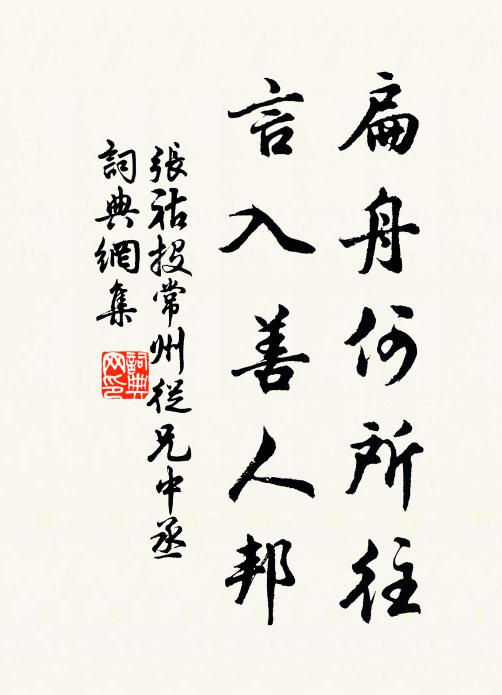 扁舟何所往
言入善人邦
張祜投常州從兄中丞
詞典網集
詞典
网印